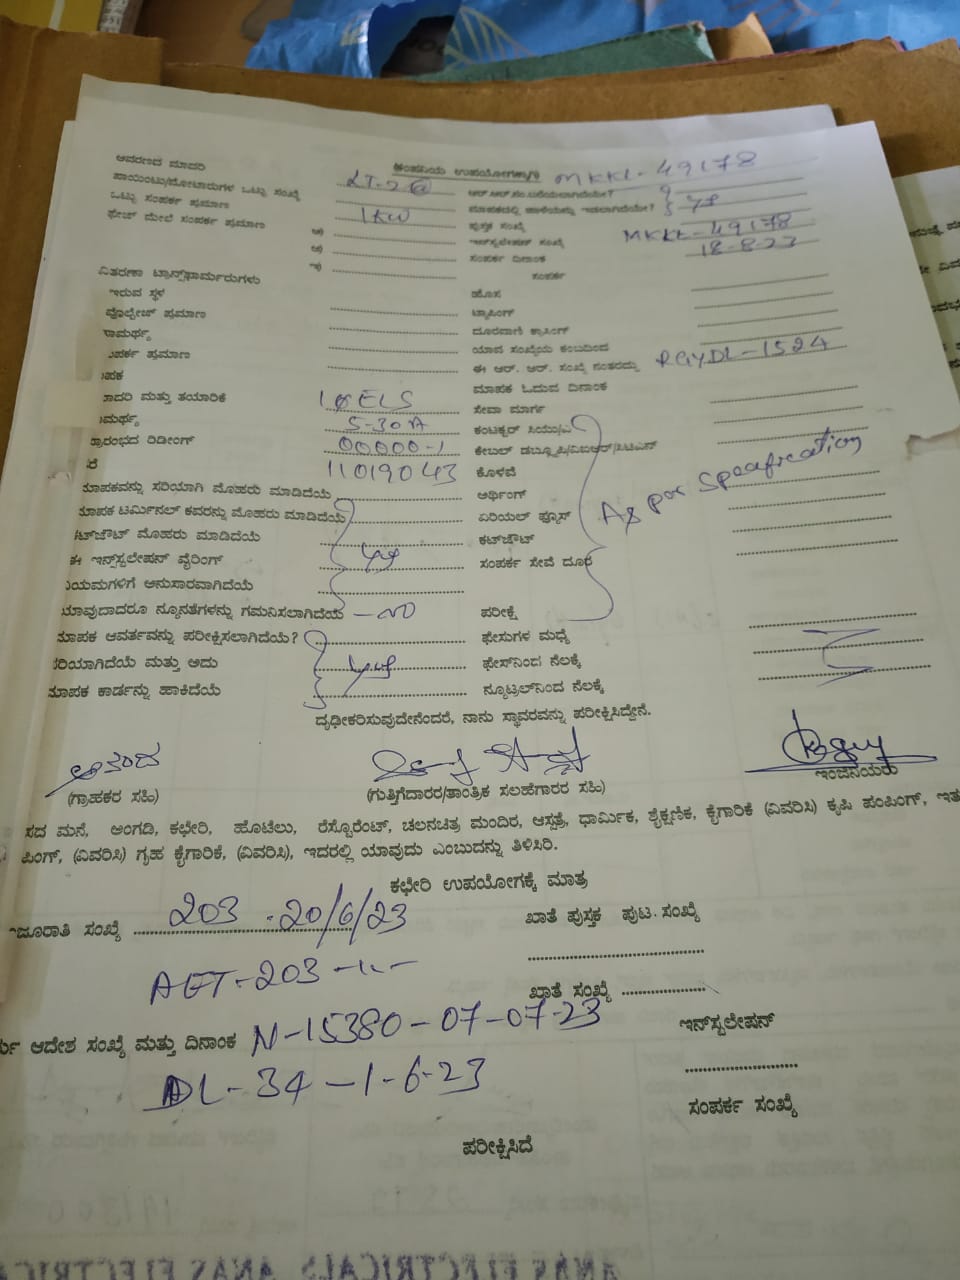 ಆವರಣದ ಮಾದರಿ
ಕಂಪನಿಯ ಉಪಯೋಗಕ್ಕಾಗಿ MKKL-49178
ಪಾಯಿಂಟು/ಮೋಟಾರುಗಳ ಒಟ್ಟು ಸಂಖ್ಯೆ LT-2
ಒಟ್ಟು ಸಂಪರ್ಕ ಪ್ರಮಾಣ 1KW ಮಾಪಕದಲ್ಲಿ
ಫೇಜ್ ಮೇಲೆ ಸಂಪರ್ಕ ಪ್ರಮಾಣ ಪುಸ್ತಕ ಸಂಖ್ಯೆ
ಇನ್‌ಸ್ಟಲೇಷನ್ ಸಂಖ್ಯೆ MKKL-49178
ಸಂಪರ್ಕ ದಿನಾಂಕ 18-8-23
ವಿತರಣಾ ಟ್ರಾನ್ಸ್‌ಫಾರ್ಮರುಗಳು ಸಂಪರ್ಕ
ಇರುವ ಸ್ಥಳ ಹೊಸ
ವೋಲ್ಟೇಜ್ ಪ್ರಮಾಣ ಟ್ಯಾಪಿಂಗ್
ಸಾಮರ್ಥ್ಯ ದೂರವಾಣಿ ಕ್ರಾಸಿಂಗ್
ಪರ್ಕ ಪ್ರಮಾಣ ಯಾವ ಸಂಖ್ಯೆಯ ಕಂಬದಿಂದ
ಪಕ ಈ ಆರ್. ಆರ್. ಸಂಖ್ಯೆ ನಂತರದ್ದು RGYDL-1524
ಾದರಿ ಮತ್ತು ತಯಾರಿಕೆ ಮಾಪಕ ಓದುವ ದಿನಾಂಕ
ಮರ್ಥ್ಯ 5-30A ಸೇವಾ ಮಾರ್ಗ
ಪ್ರಾರಂಭದ ರಿಡೀಂಗ್ 00000-1
11019043 ಕೊಳವೆ
ಮಾಪಕವನ್ನು ಸರಿಯಾಗಿ ಮೊಹರು ಮಾಡಿದೆಯೆ ಅರ್ಥಿಂಗ್
ಮಾಪಕ ಟರ್ಮಿನಲ್ ಕವರನ್ನು ಮೊಹರು ಮಾಡಿದೆಯೆ ಏರಿಯಲ್ ಫ್ಯೂಸ್ As per Specification
ಕಟ್‌ಔಟ್ ಮೊಹರು ಮಾಡಿದೆಯೆ ಕಟ್‌ಔಟ್
ಈ ಇನ್‌ಸ್ಟಲೇಷನ್ ವೈರಿಂಗ್ ಸಂಪರ್ಕ ಸೇವೆ ದೂರ
ನಿಯಮಗಳಿಗೆ ಅನುಸಾರವಾಗಿದೆಯೆ
ಯಾವುದಾದರೂ ನ್ಯೂನತೆಗಳನ್ನು ಗಮನಿಸಲಾಗಿದೆಯೆ - no ಪರೀಕ್ಷೆ
ಮಾಪಕ ಆವರ್ತವನ್ನು ಪರೀಕ್ಷಿಸಲಾಗಿದೆಯೆ? ಫೇಸುಗಳ ಮಧ್ಯೆ
ಸರಿಯಾಗಿದೆಯೆ ಮತ್ತು ಅದು ಫೇಸ್‌ನಿಂದ ನೆಲಕ್ಕೆ
ಮಾಪಕ ಕಾರ್ಡನ್ನು ಹಾಕಿದೆಯೆ ನ್ಯೂಟ್ರಲ್‌ನಿಂದ ನೆಲಕ್ಕೆ
ದೃಢೀಕರಿಸುವುದೇನೆಂದರೆ, ನಾನು ಸ್ಥಾವರವನ್ನು ಪರೀಕ್ಷಿಸಿದ್ದೇನೆ.
ಆನಂದ
(ಗ್ರಾಹಕರ ಸಹಿ) (ಗುತ್ತಿಗೆದಾರರ/ತಾಂತ್ರಿಕ ಸಲಹೆಗಾರರ ಸಹಿ) ಇಂಜಿನಿಯರು
ಸದ ಮನೆ, ಅಂಗಡಿ, ಕಛೇರಿ, ಹೊಟೆಲು, ರೆಸ್ಟೊರೆಂಟ್, ಚಲನಚಿತ್ರ ಮಂದಿರ, ಆಸ್ಪತ್ರೆ, ಧಾರ್ಮಿಕ, ಶೈಕ್ಷಣಿಕ, ಕೈಗಾರಿಕೆ (ವಿವರಿಸಿ) ಕೃಷಿ ಪಂಪಿಂಗ್, ಇತ
ಪಿಂಗ್, (ವಿವರಿಸಿ) ಗೃಹ ಕೈಗಾರಿಕೆ, (ವಿವರಿಸಿ), ಇದರಲ್ಲಿ ಯಾವುದು ಎಂಬುದನ್ನು ತಿಳಿಸಿರಿ.
ಕಛೇರಿ ಉಪಯೋಗಕ್ಕೆ ಮಾತ್ರ
ಜೂರಾತಿ ಸಂಖ್ಯೆ 203 - 20/6/23 ಖಾತೆ ಪುಸ್ತಕ ಪುಟ. ಸಂಖ್ಯೆ
AET-203
ಖಾತೆ ಸಂಖ್ಯೆ
ರ್ಯ ಆದೇಶ ಸಂಖ್ಯೆ ಮತ್ತು ದಿನಾಂಕ N-15380-07-07-23 ಇನ್‌ಸ್ಟಲೇಷನ್
DL-34-1-6-23
ಸಂಪರ್ಕ ಸಂಖ್ಯೆ
ಪರೀಕ್ಷಿಸಿದೆ
ANAS ELECTRICALS ANAS ELECTRICAL